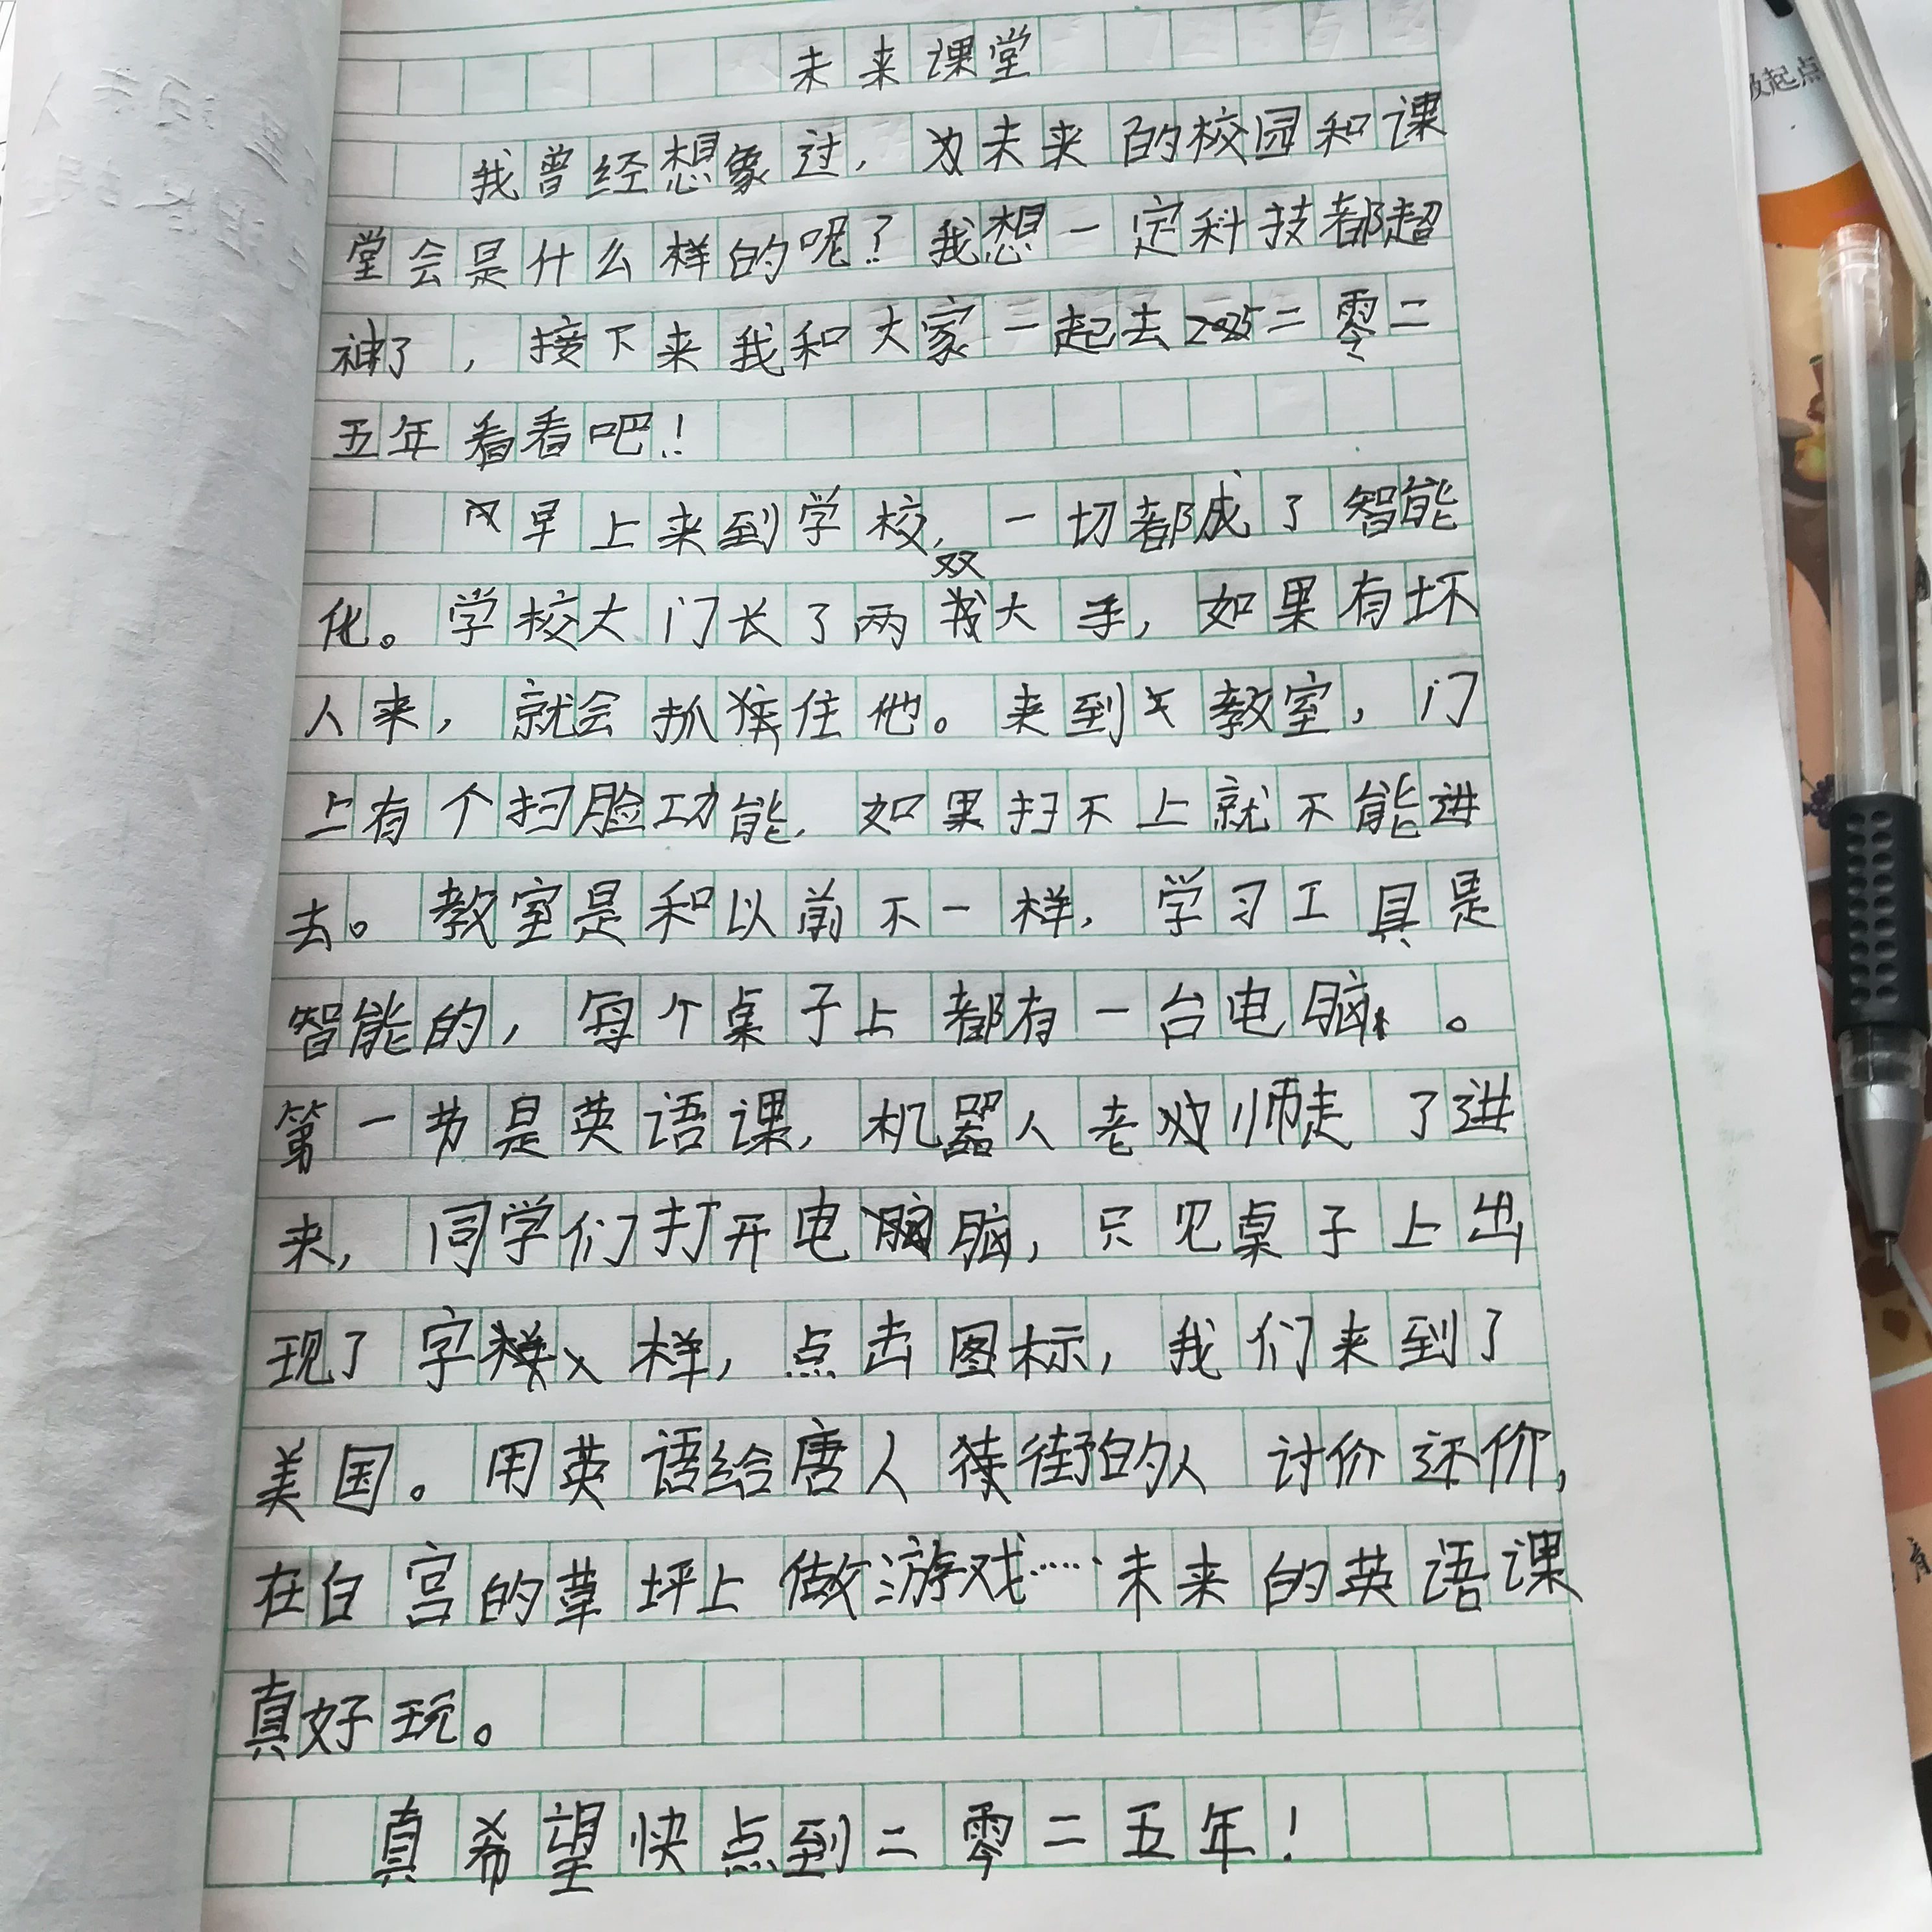 未来课堂
我曾经想象过，未来的校园和课
堂会是什么样的呢？我想一定科技都超
神了，接下来我和大家一起去二零二
五年看看吧！
早上来到学校，一切都成了智能
化。学校大门长了两双大手，如果有坏
人来，就会抓住他。来到教室，门
上有个扫脸功能，如果扫不上就不能进
去。教室是和以前不一样，学习工具是
智能的，每个桌子上都有一台电脑。
第一节是英语课，机器人老师走了进
来，同学们打开电脑，只见桌子上出
现了字样，点击图标，我们来到了
美国。用英语给唐人街的人讨价还价，
在白宫的草坪上做游戏……未来的英语课
真好玩。
真希望快点到二零二五年！
级起点
育